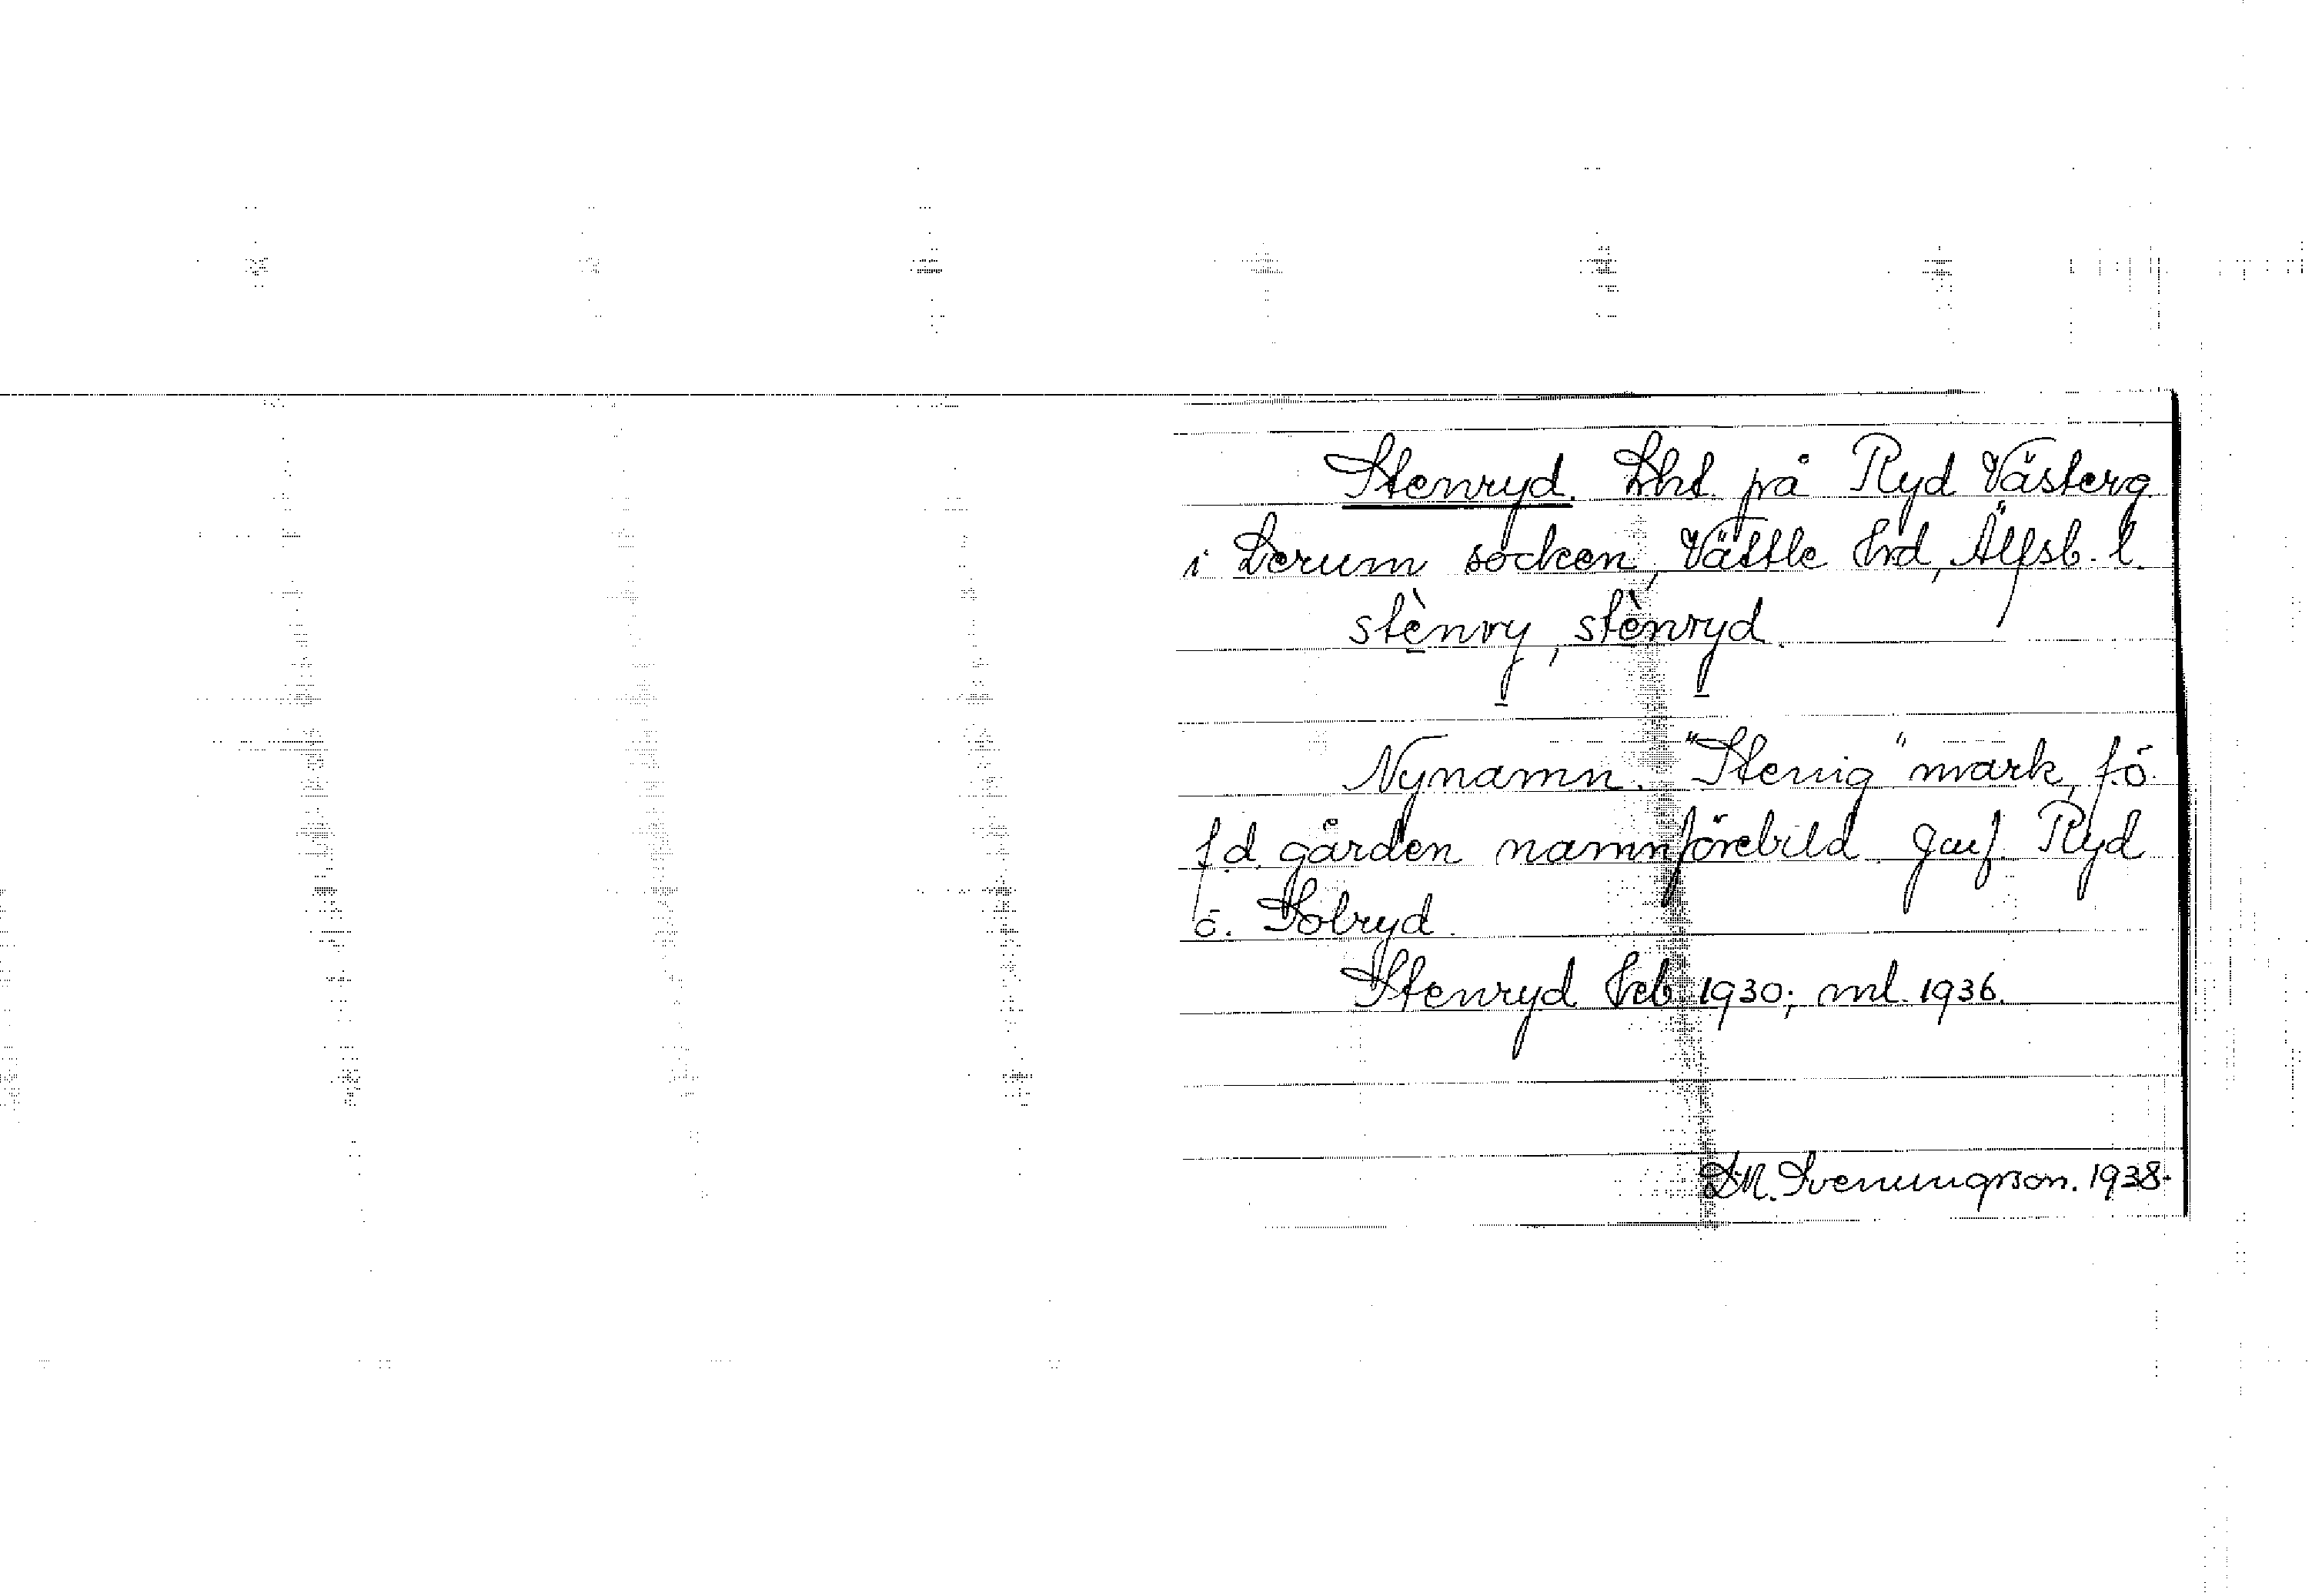 Stenryd. Lht. på Ryd Västerg.
i Lerum socken, Vättle hrd, Älfsb. l.
stènry, stènryd.
Nynamn. "Stenig" mark, f.ö.
f.d. gården namnförebild. Jmf. Ryd
o. Solryd.
Stenryd Feb 1930; ml. 1936.
Svenungsson. 1938.